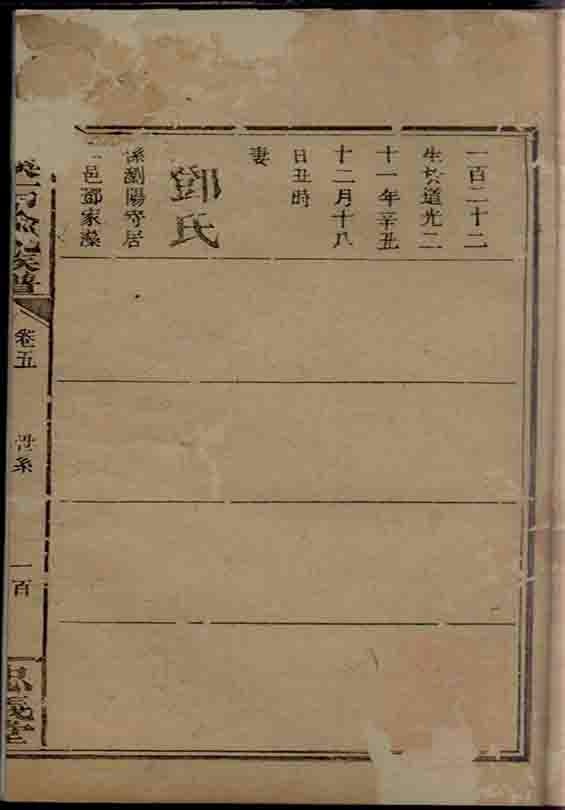 一百二十二
生於道光二
十一年辛丑
十二月十八
日丑時
妻
鄧氏
係瀏陽寄居
邑鄧家藻
氏族譜
卷五
世系
一百
忠義堂